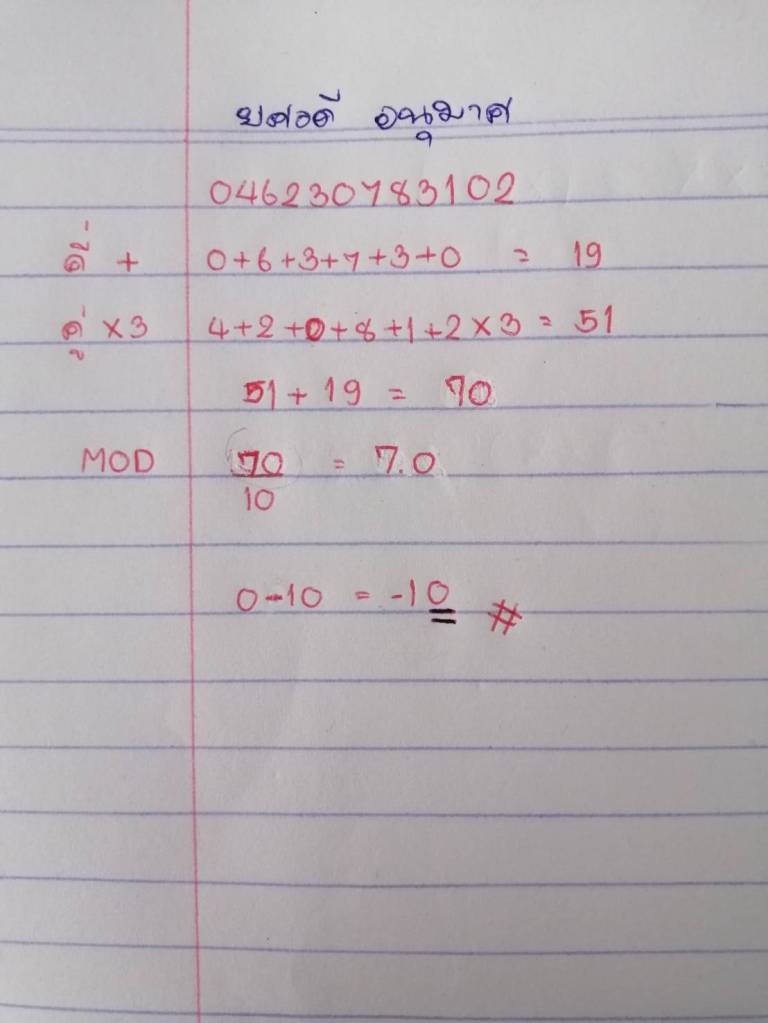 ยศวดี อนุมาศ
046230783102
คี่ + 0+6+3+7+3+0 = 19
คู่ ×3 4+2+0+8+1+2×3 = 51
51+19 = 70
MOD 70 = 7.0
10
0-10 = -10 #